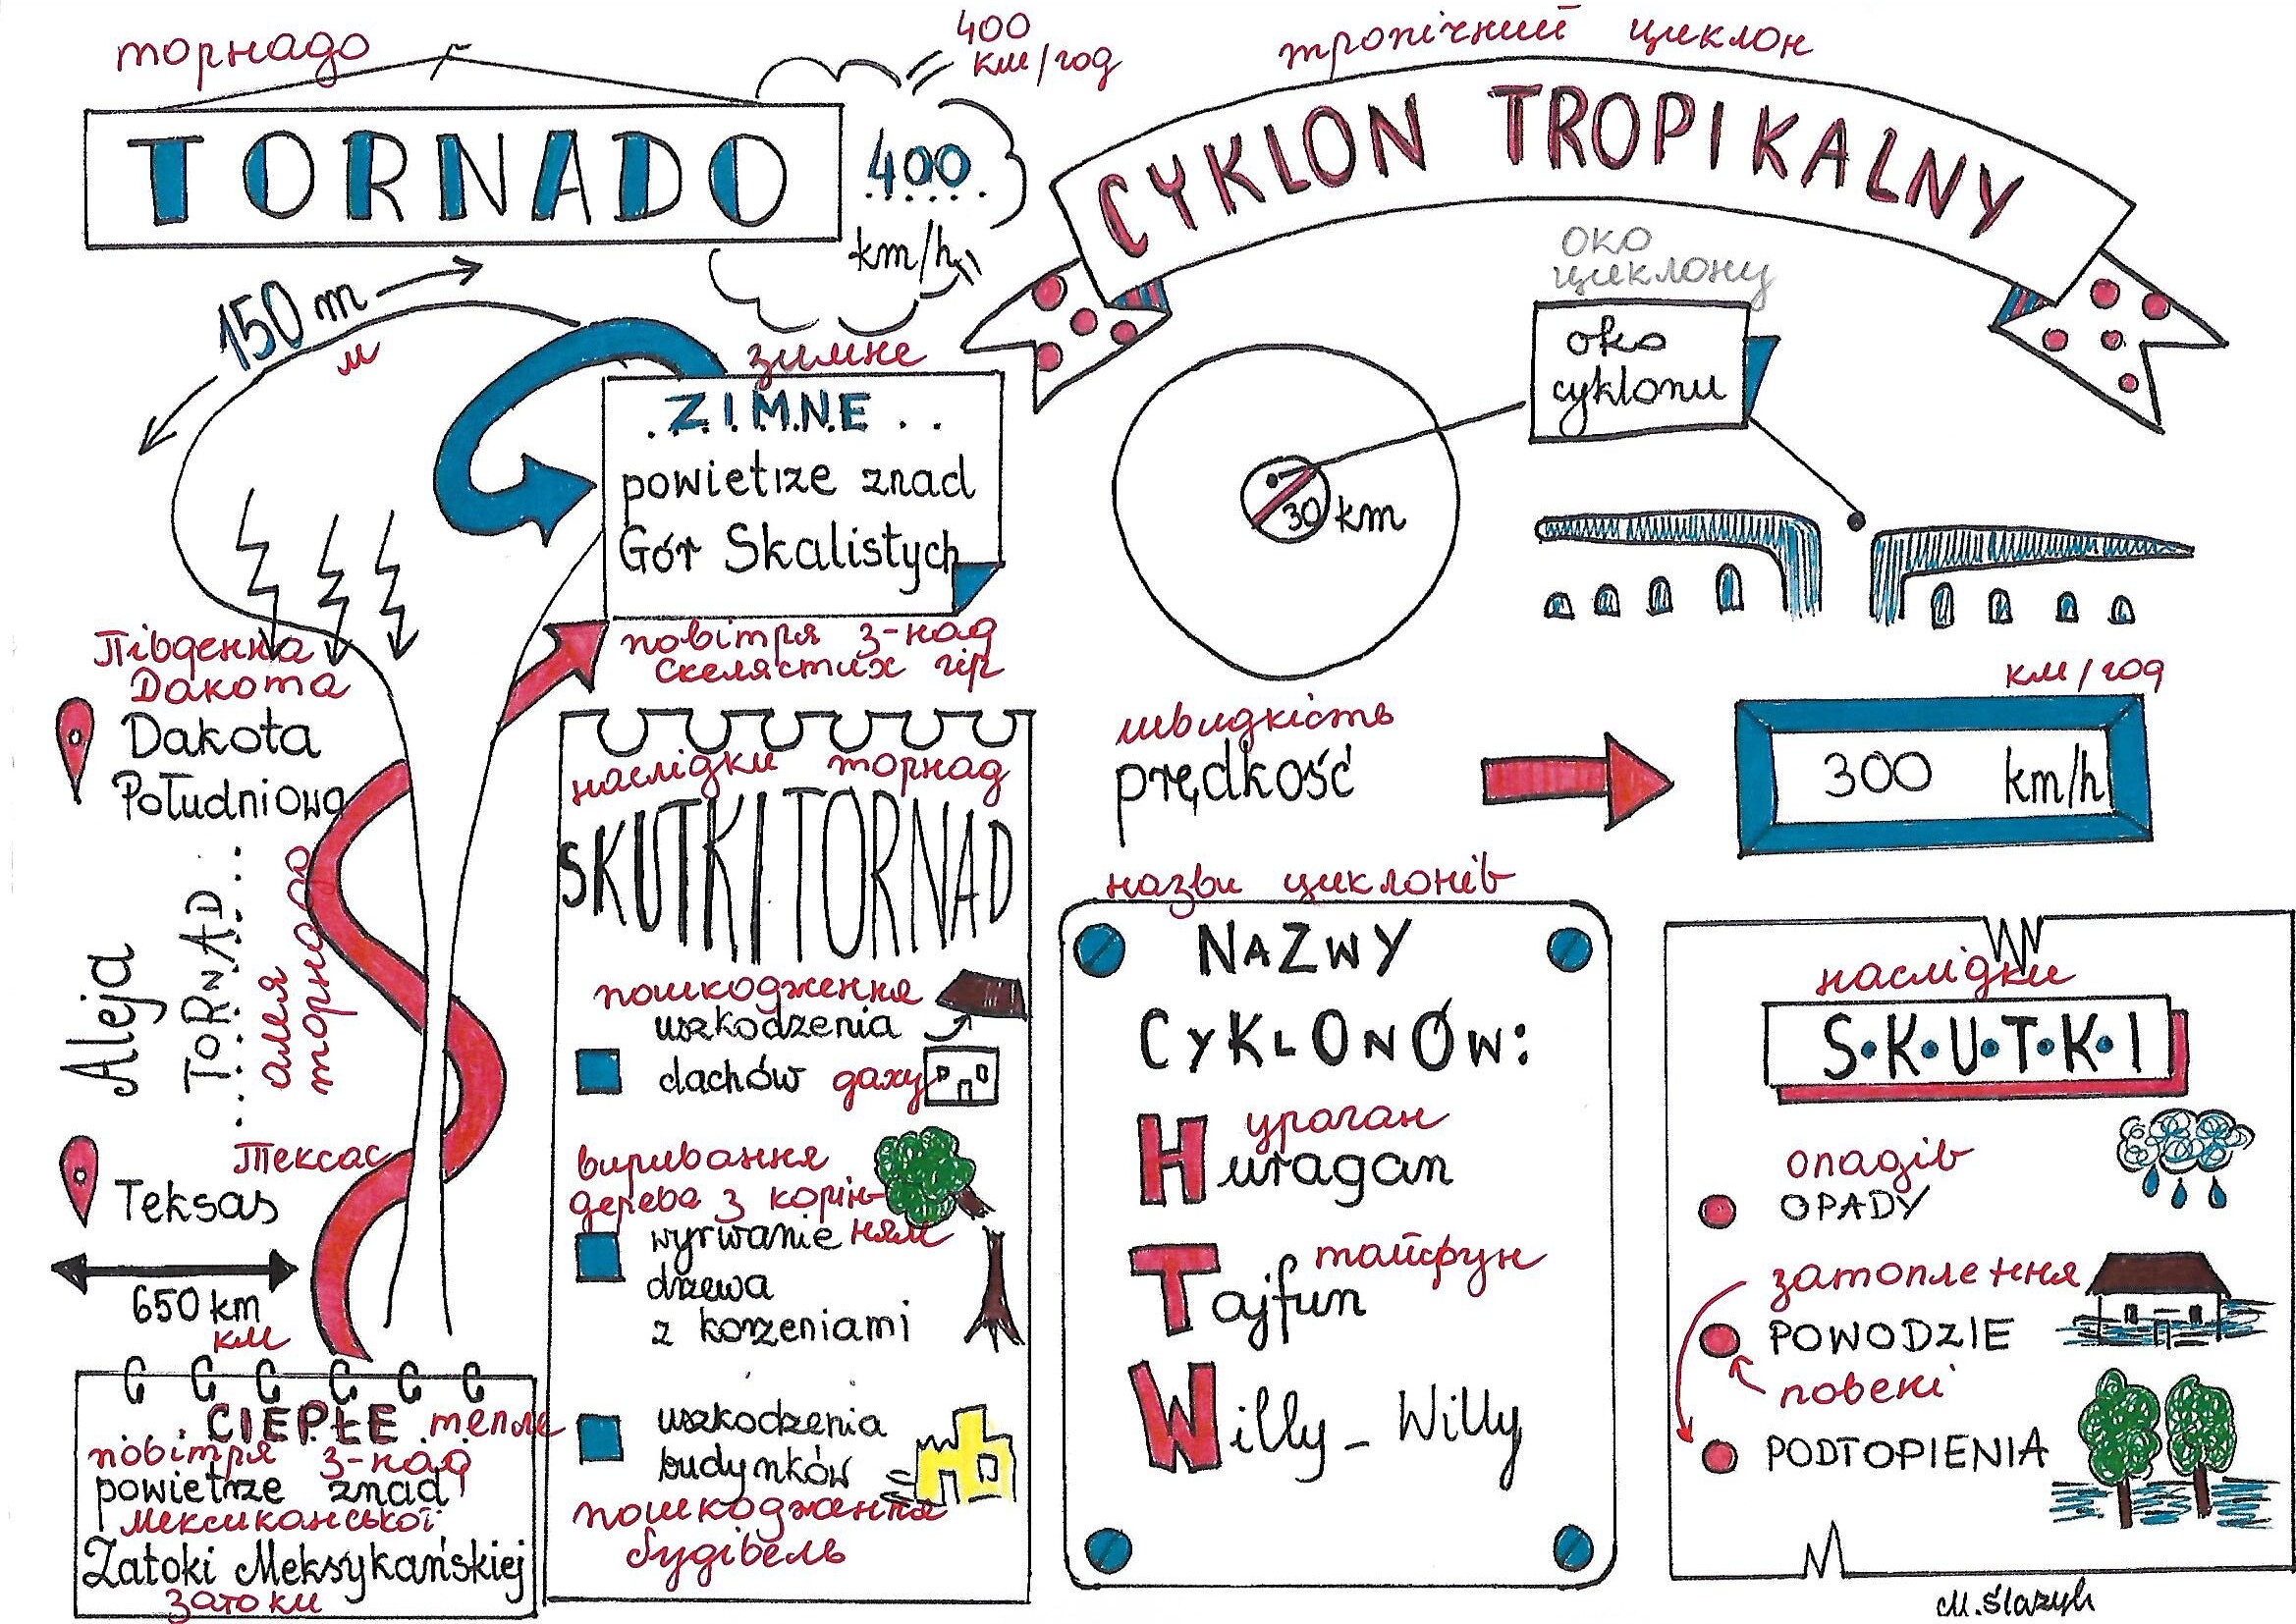 торнадо
TORNADO
400
км/год
400
km/h
150 m
м
зимне
ZIMNE
powietrze znad
Gór Skalistych
повітря з-над
скелястих гір
Південна
Дакота
Dakota
Południowa
Aleja
TORNAD
алея
торнадо
Тексас
Teksas
650 km
км
CIEPŁE тепле
повітря з-над
powietrze znad
мексиканської
Zatoki Meksykańskiej
затоки
наслідки торнад
SKUTKI TORNAD
пошкодження
uszkodzenia
dachów даху
виривання
дерева з корін-
wyrwanie ням
drzewa
z korzeniami
uszkodzenia
budynków
пошкодження
будівель
тропічний циклон
CYKLON TROPIKALNY
око
циклону
oko
cyklonu
30 km
швидкість
prędkość
км/год
300 km/h
назви циклонів
NAZWY
CYKLONÓW:
ураган
Huragan
тайфун
Tajfun
Willy - Willy
наслідки
S•K•U•T•K•I
опадів
OPADY
затоплення
POWODZIE
повені
PODTOPIENIA
M. Ślazyk